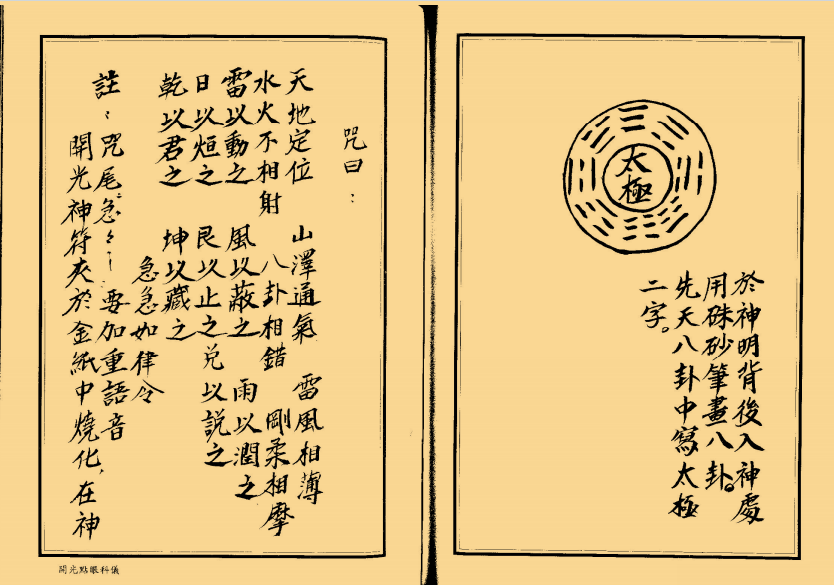 太極
於神明背後入神處
用硃砂筆畫八卦。
先天八卦中寫太極
二字。
咒曰：
天地定位 山澤通氣 雷風相薄
水火不相射 八卦相錯 剛柔相摩
雷以動之 風以蔽之 雨以潤之
日以烜之 艮以止之 兑以説之
乾以君之 坤以藏之
急急如律令
註：咒尾急々…要加重語音
開光神符夾於金紙中燒化，在神
開光點眼科儀